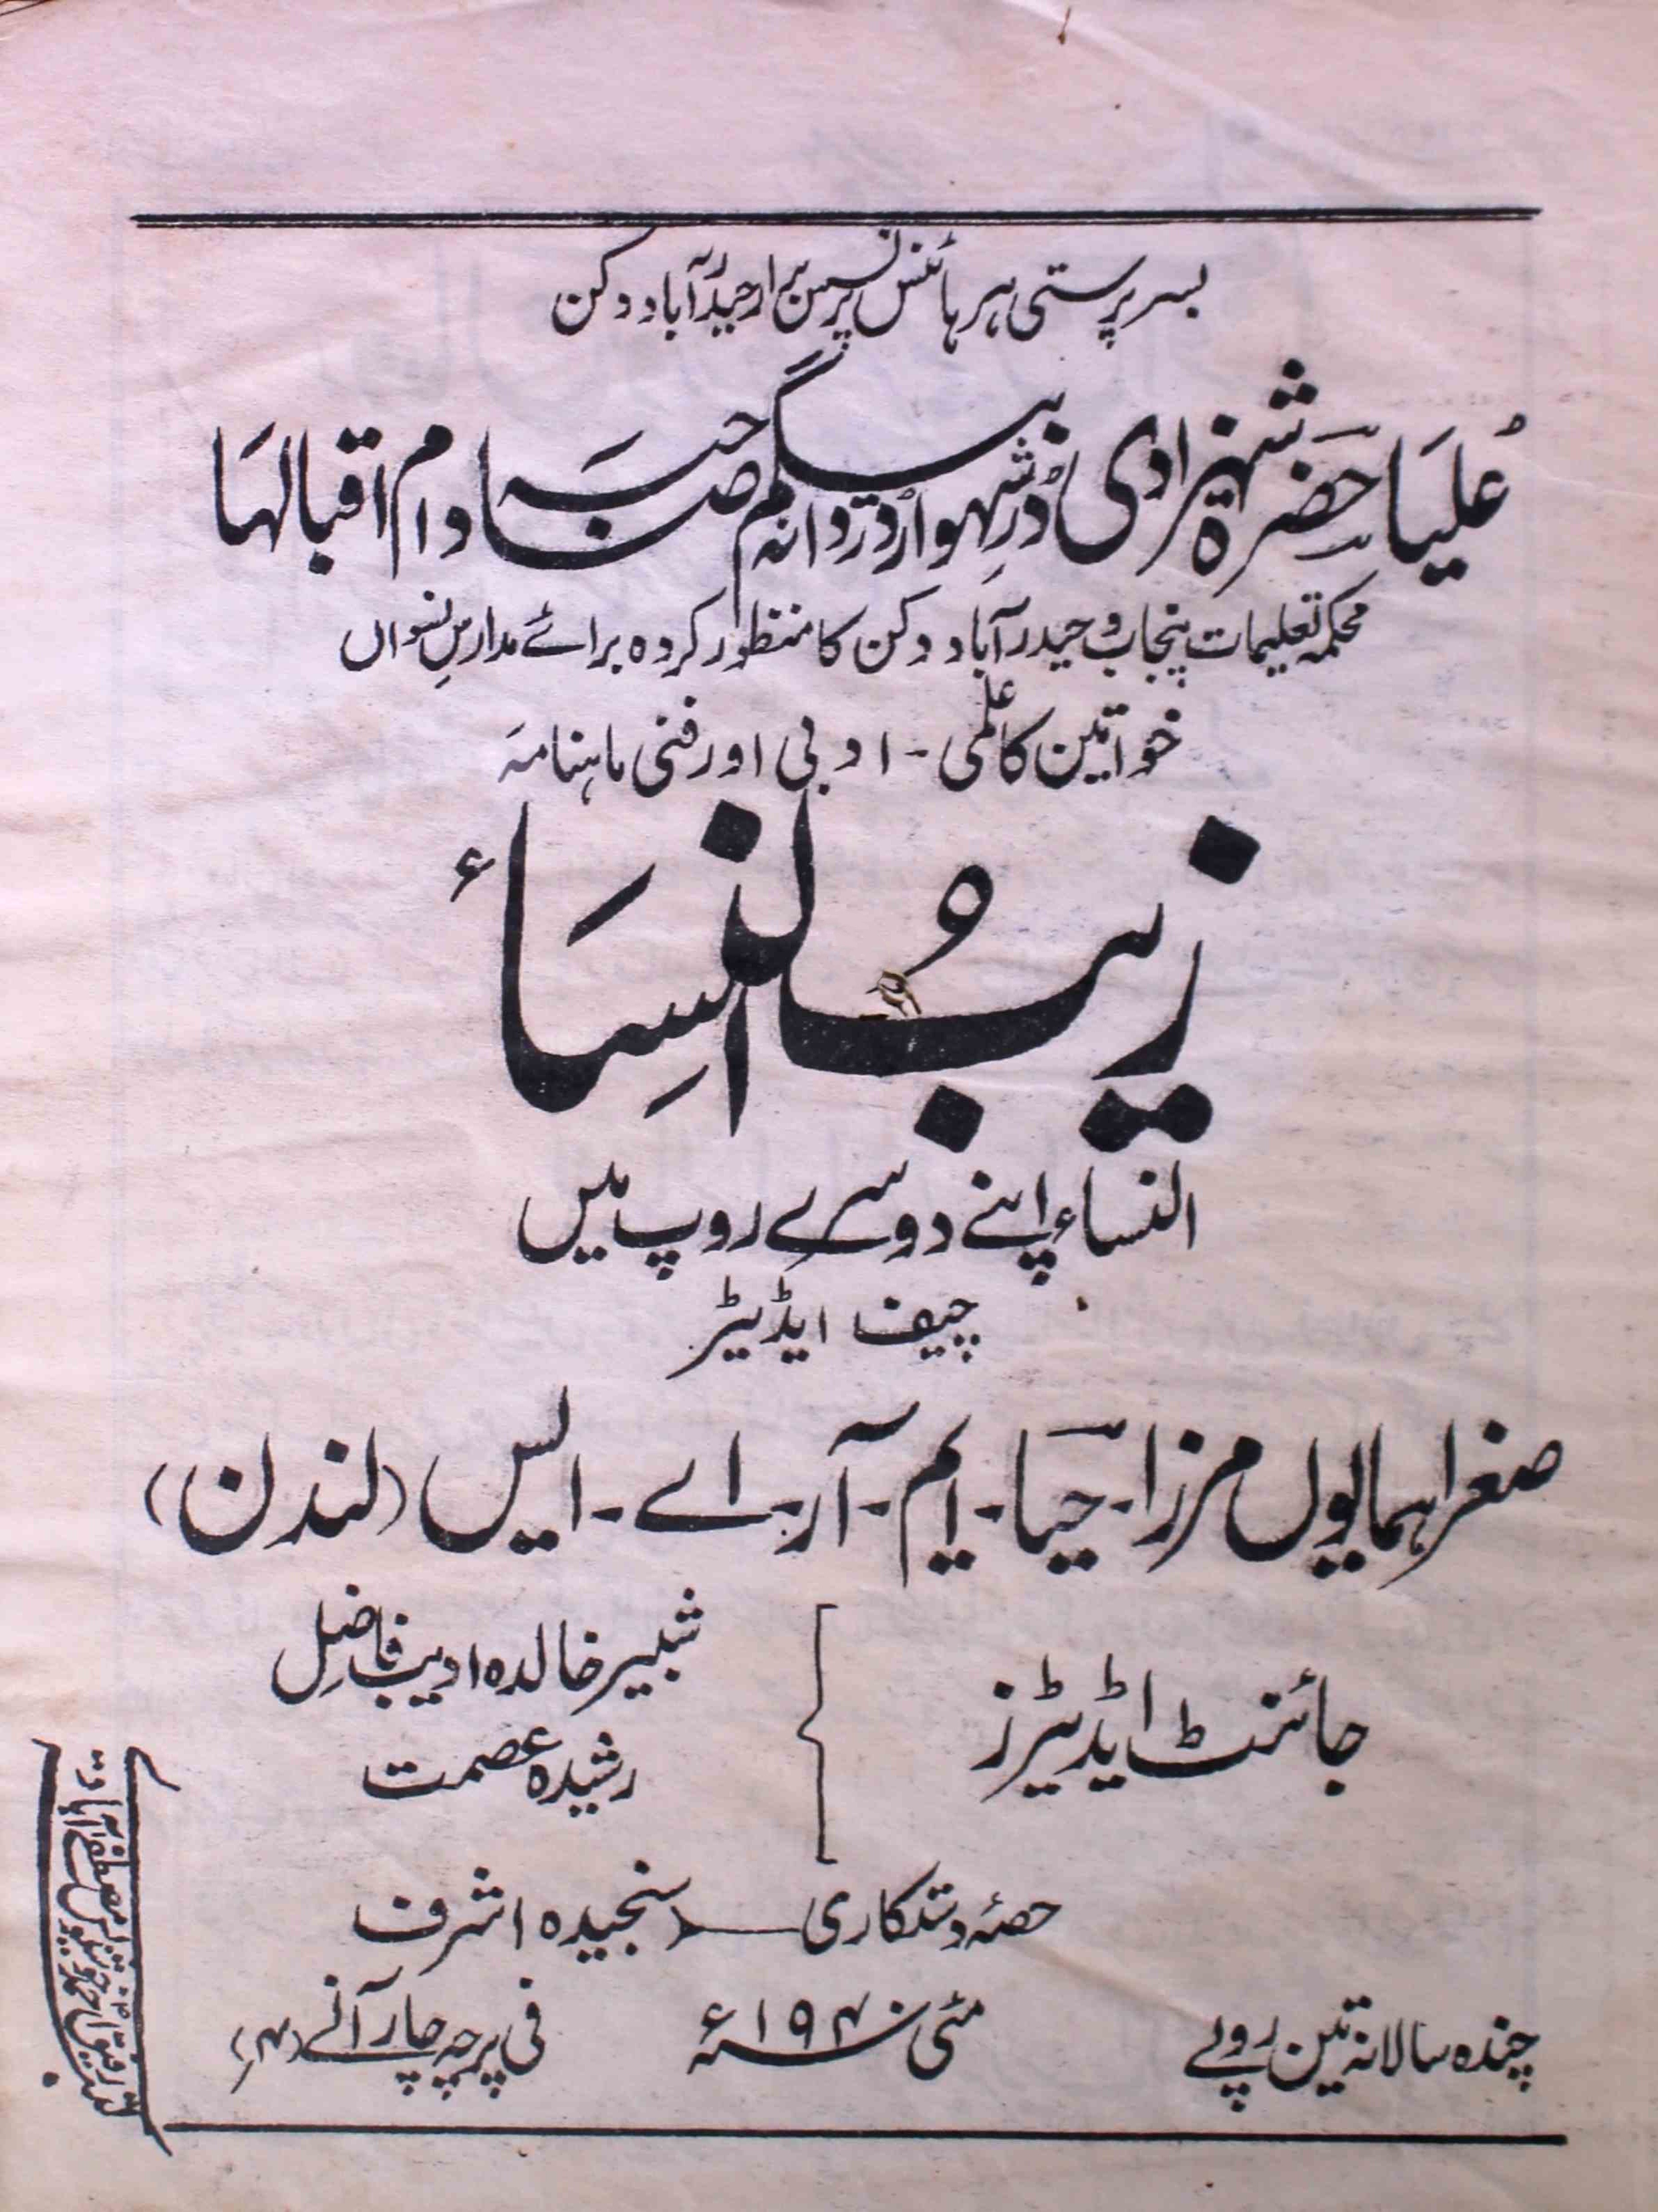 بسرپرستی ہرہائنس پرنسس برار حیدرآباد دکن
عُلیَا حَضرۃ شہزادی دُرِّشہوار دُردانہ بیگم صَاحبہ دام اقبالہَا
محکمہ تعلیمات پنجاب و حیدرآباد دکن کا منظور کردہ برائے مدارسِ نسواں
خواتین کا علمی - ادبی اور فنی ماہنامہ
زیبُ النِسَاء
النساء اپنے دوسرے روپ میں
چیف ایڈیٹر
صغرا ہمایوں مرزا - حیَا - ایم - آر - اے - ایس (لندن)
جائنٹ ایڈیٹرز
شبیر خالدہ ادیب فاضل
رشیدہ عصمت
حصئہ دستکاری — سنجیدہ اشرف
چندہ سالانہ تین روپے
مئی ۱۹۴۰ء
فی پرچہ چار آنے (۴ر)